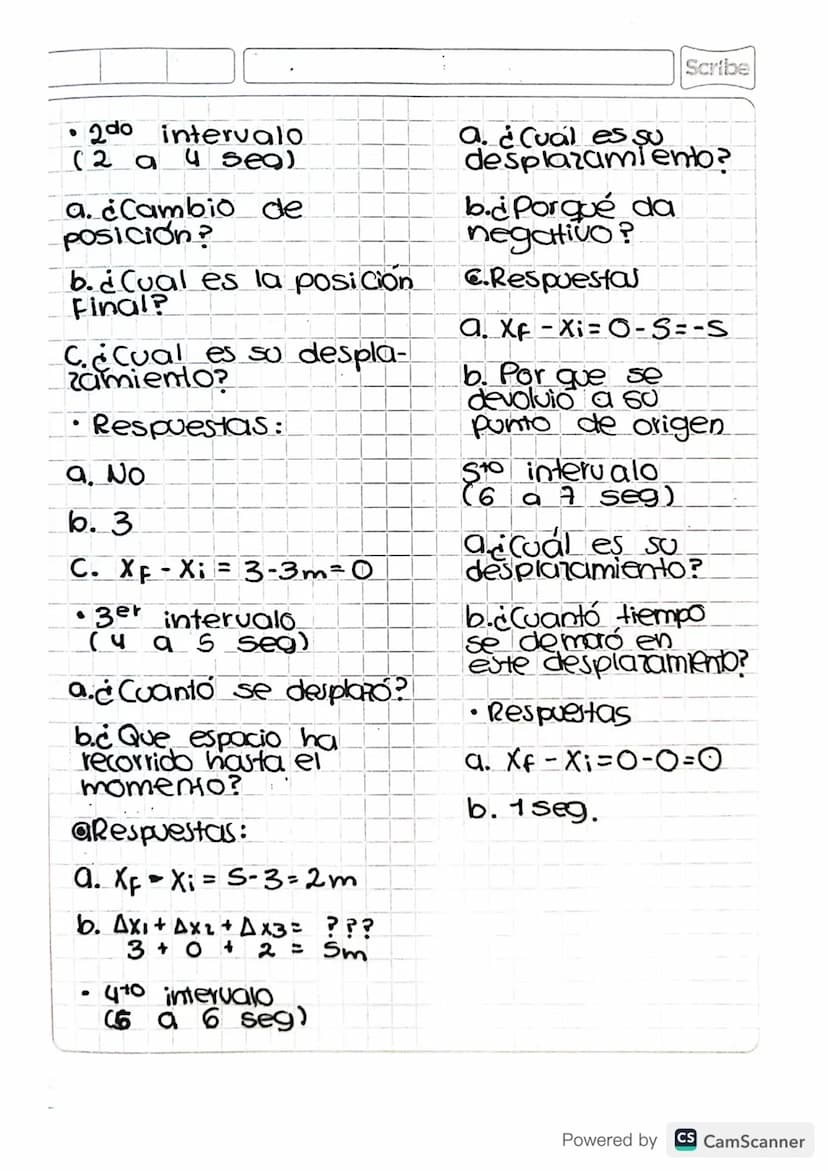 Scribe
• 2do intervalo
(2 a 4 seg)
a. ¿Cambio de
posición?
b. ¿Cual es la posición
Final?
C. ¿Cual es su despla-
zamiento?
• Respuestas:
a. No
b. 3
C. XF - Xi = 3-3m=0
• 3er intervalo
(4 a 5 seg)
a.¿Cuantó se desplazó?
b.¿Que espacio ha
recorrido hasta el
momento?
@Respuestas:
a. XF - Xi = 5-3=2m
b. ΔX1+ ΔX2+ΔX3= ???
3 + 0 + 2 = 5m
• 4to intervalo
(5 a 6 seg)
a. ¿Cuál es su
desplazamiento?
b.¿Porqué da
negativo?
C.Respuestas
a. XF -Xi=0-5=-5
b. Por que se
devolvió a su
punto de origen
5to intervalo
(6 a 7 seg)
a.¿Cuál es su
desplazamiento?
b.¿Cuantó tiempo
se demoró en
este desplazamiento?
• Respuestas
a. XF - Xi=0-0=0
b. 1 seg.
Powered by CS CamScanner